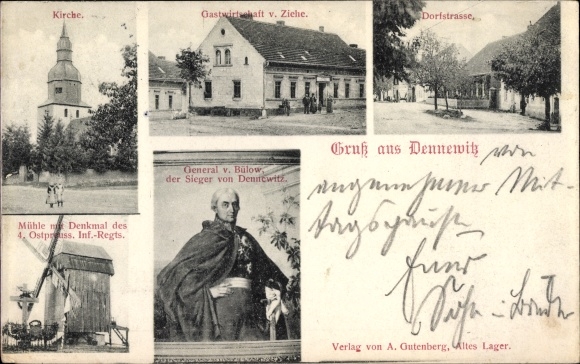 Kirche.
Gastwirtschaft v. Ziehe.
Dorfstrasse.
Gruß aus Dennewitz
von
angenehmer Mit-
tagspause
Euer
Sohn
General v. Bülow,
der Sieger von Dennewitz.
Mühle mit Denkmal des
4. Ostpreuss. Inf.-Regts.
Verlag von A. Gutenberg, Altes Lager.